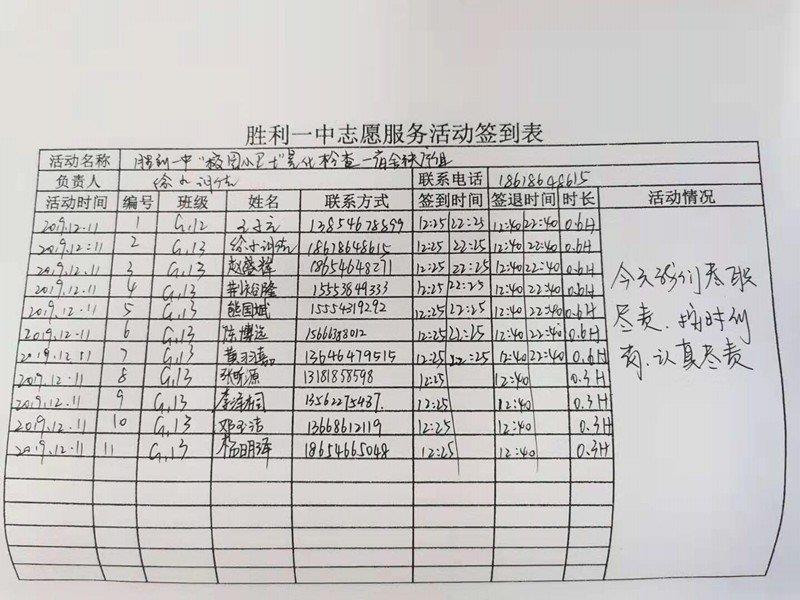 胜利一中志愿服务活动签到表
活动名称 胜利一中"校园小卫士"亮化检查一宿舍
负责人 徐小训佐 联系电话 18618648615
活动时间 编号 班级 姓名 联系方式 签到时间 签退时间 时长 活动情况
2019.12.11 1 G.12 13854678899 12:25 22:25 12:40 22:40 0.6H
2019.12.11 2 G.13 18618648615 12:25 22:25 12:40 22:40 0.6H
2019.12.11 3 G.13 赵馨辉 18654648271 12:25 22:25 12:40 22:40 0.6H
2019.12.11 4 G.13 裕隆 15553849333 12:25 22:25 12:40 22:40 0.6H
2019.12.11 5 G.13 熊国斌 15554319292 12:25 22:25 12:40 22:40 0.6H
2019.12.11 6 G.13 陈博远 15666388012 12:25 22:25 12:40 22:40 0.6H
2019.12.11 7 G.13 黄羽嘉 13646479515 12:25 22:25 12:40 22:40 0.6H
2019.12.11 8 G.13 张昕源 13181858598 12:25 12:40 0.3H
2019.12.11 9 G.13 李泽桐 13562275487 12:25 12:40 0.3H
2019.12.11 10 G.13 邓玉洁 13668612119 12:25 12:40 0.3H
2019.12.11 11 G.13 杨明泽 18654665048 12:25 12:40 0.3H
今天我们尽职
尽责.按时到
岗.认真尽责